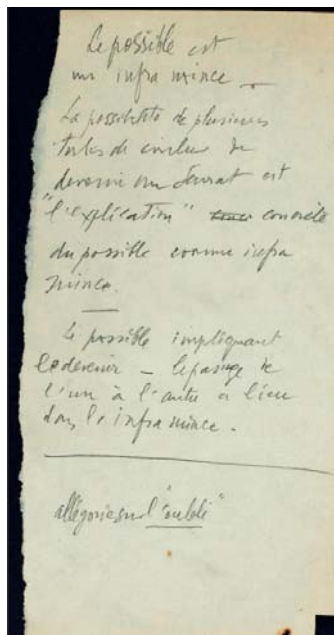 Le possible est
un infra mince _
La possibilité de plusieurs
tubes de couleur de
devenir un Seurat est
"l'explication" concrète
du possible comme infra
mince.
le possible impliquant
le devenir — le passage de
l'un à l'autre a lieu
dans l'infra mince.
allégorie sur l'"oubli"